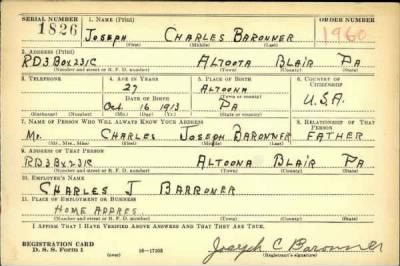 SERIAL NUMBER 1. NAME (Print) ORDER NUMBER
1826 JOSEPH CHARLES BARONNER 1960
(First) (Middle) (Last)
2. ADDRESS (Print)
RD3 BOX 231C ALTOOTA BLAIR PA
(Number and street or R. F. D. number) (Town) (County) (State)
3. TELEPHONE 4. AGE IN YEARS 5. PLACE OF BIRTH 6. COUNTRY OF CITIZENSHIP
27 ALTOONA
DATE OF BIRTH (Town or county)
OCT. 16 1913 PA U.S.A.
(Exchange) (Number) (Mo.) (Day) (Yr.) (State or country)
7. NAME OF PERSON WHO WILL ALWAYS KNOW YOUR ADDRESS 8. RELATIONSHIP OF THAT PERSON
MR. CHARLES JOSEPH BARONNER FATHER
(Mr., Mrs., Miss) (First) (Middle) (Last)
9. ADDRESS OF THAT PERSON
RD3 BX231C ALTOONA BLAIR PA
(Number and street or R. F. D. number) (Town) (County) (State)
10. EMPLOYER'S NAME
CHARLES J BARRONER
11. PLACE OF EMPLOYMENT OR BUSINESS
HOME ADDRES
(Number and street or R. F. D. number) (Town) (County) (State)
I AFFIRM THAT I HAVE VERIFIED ABOVE ANSWERS AND THAT THEY ARE TRUE.
REGISTRATION CARD
D. S. S. Form 1 (over) 16—17105 Joseph C Baronner
(Registrant's signature)